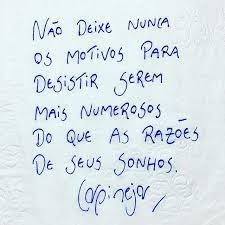 NÃO DEIXE NUNCA
OS MOTIVOS PARA
DESISTIR SEREM
MAIS NUMEROSOS
DO QUE AS RAZÕES
DE SEUS SONHOS.
Carpinejar